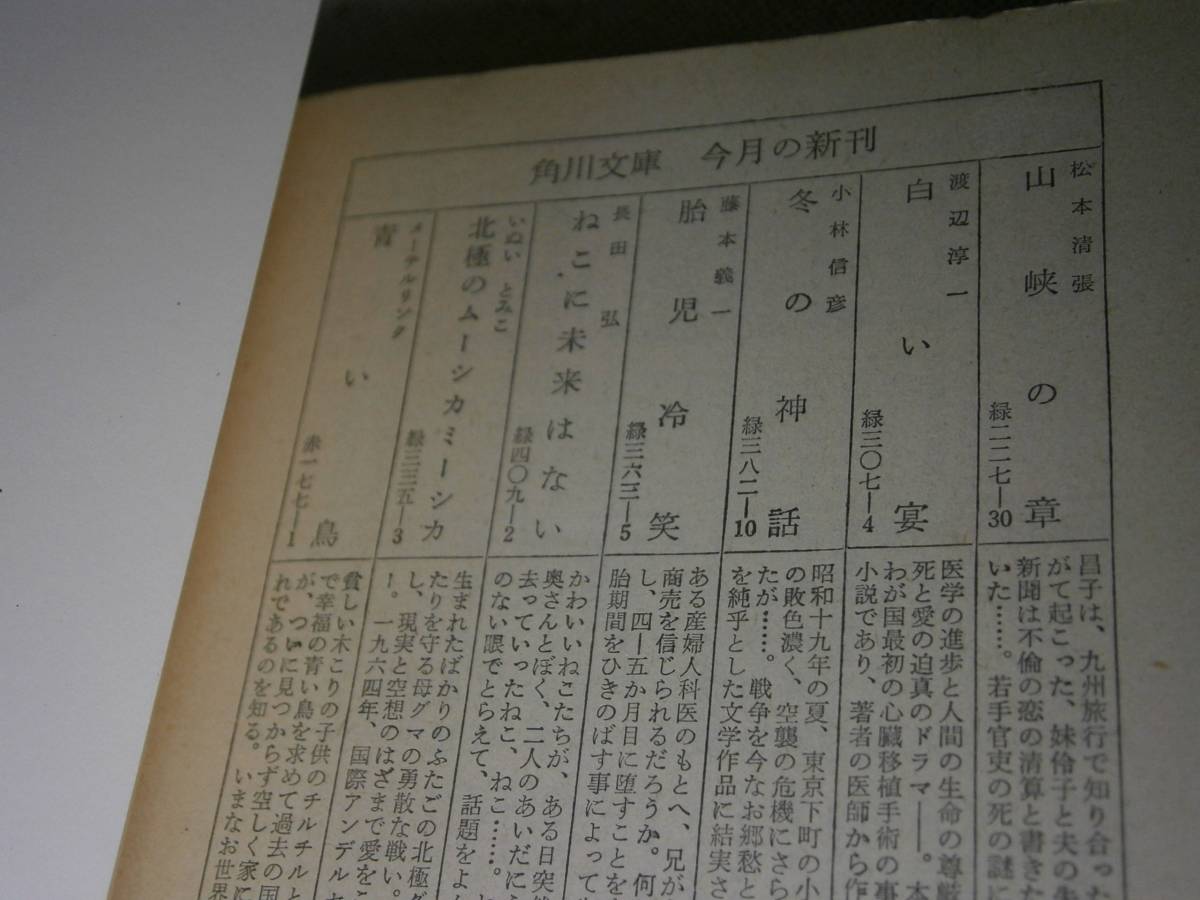 角川文庫 今月の新刊
松本清張
山峡の章
緑二二七―30
昌子は、九州旅行で知り合った
がて起こった、妹伶子と夫の失
新聞は不倫の恋の清算と書きた
いた……。若手官吏の死の謎に
渡辺淳一
白い宴
緑三〇七―4
医学の進歩と人間の生命の尊厳
死と愛の迫真のドラマ――。本
わが国最初の心臓移植手術の事
小説であり、著者の医師から作
小林信彦
冬の神話
緑三八二―10
昭和十九年の夏、東京下町の小
の敗色濃く、空襲の危機にさら
たが……。戦争を今なお郷愁と
を純乎とした文学作品に結実さ
藤本義一
胎児冷笑
緑三六三―5
ある産婦人科医のもとへ、兄が
商売を信じられるだろうか。何
し、四―五か月目に堕すことを
胎期間をひきのばす事によって
長田弘
ねこに未来はない
緑四〇九―2
かわいいねこたちが、ある日突然
奥さんとぼく、二人のあいだに
去っていったねこ、ねこ……。
のない眼でとらえて、話題をよ
いぬいとみこ
北極のムーシカミーシカ
緑三三五―3
生まれたばかりのふたごの北極グ
たりを守る母グマの勇敢な戦い。
し、現実と空想のはざまで愛をこ
ー。一九六四年、国際アンデルセ
メーテルリンク
青い鳥
赤一七七―1
貧しい木こりの子供のチルチルと
で幸福の青い鳥を求めて過去の国
が、ついに見つからず空しく家に
れであるのを知る。いまなお世界